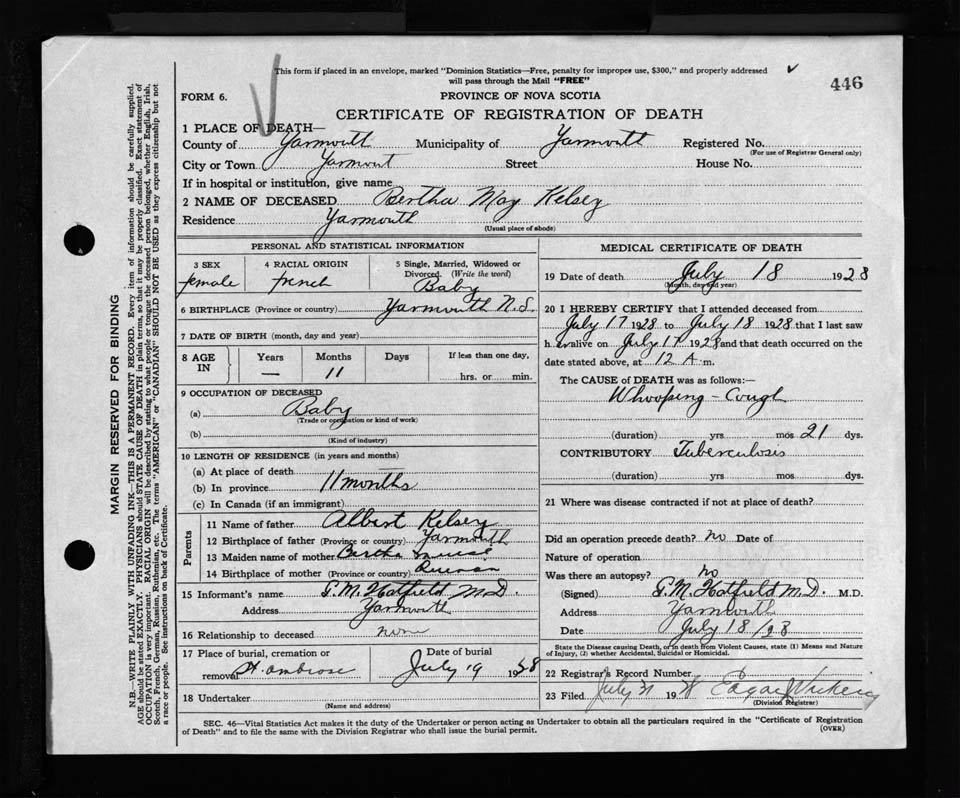 This form if placed in an envelope, marked "Dominion Statistics—Free, penalty for improper use, $300," and properly addressed
will pass through the Mail "FREE"
446
FORM 6.
PROVINCE OF NOVA SCOTIA
CERTIFICATE OF REGISTRATION OF DEATH
1 PLACE OF DEATH—
County of Yarmouth Municipality of Yarmouth Registered No.
(For use of Registrar General only)
City or Town Yarmouth Street House No.
If in hospital or institution, give name
2 NAME OF DECEASED Bertha May Kelsey
Residence Yarmouth
(Usual place of abode)
PERSONAL AND STATISTICAL INFORMATION
3 SEX 4 RACIAL ORIGIN 5 Single, Married, Widowed or
Divorced. (Write the word)
female french Baby
6 BIRTHPLACE (Province or country) Yarmouth N.S.
7 DATE OF BIRTH (month, day and year)
8 AGE IN Years Months Days If less than one day,
— 11 hrs. or min.
9 OCCUPATION OF DECEASED
(a) Baby
(Trade or occupation or kind of work)
(b)
(Kind of industry)
10 LENGTH OF RESIDENCE (in years and months)
(a) At place of death
(b) In province 11 months
(c) In Canada (if an immigrant)
Parents
11 Name of father Albert Kelsey
12 Birthplace of father (Province or country) Yarmouth
13 Maiden name of mother Bertha
14 Birthplace of mother (Province or country)
15 Informant's name G.M. Hatfield M.D.
Address Yarmouth
16 Relationship to deceased none
17 Place of burial, cremation or Date of burial
removal St. Ambrose July 19 1928
18 Undertaker
(Name and address)
MEDICAL CERTIFICATE OF DEATH
19 Date of death July 18 1928
(Month, day and year)
20 I HEREBY CERTIFY that I attended deceased from
July 17 1928 to July 18 1928 that I last saw
h er alive on July 17 1928 and that death occurred on the
date stated above, at 12 A. m.
The CAUSE OF DEATH was as follows:—
Whooping-Cough
(duration) yrs mos 21 dys.
CONTRIBUTORY Tuberculosis
(duration) yrs mos dys.
21 Where was disease contracted if not at place of death?
Did an operation precede death? no Date of
Nature of operation
Was there an autopsy? no
(Signed) G.M. Hatfield M.D. M.D.
Address Yarmouth
Date July 18/28
State the Disease causing Death, or in death from Violent Causes, state (1) Means and Nature
of Injury, (2) whether Accidental, Suicidal or Homicidal.
22 Registrar's Record Number
23 Filed July 31 1928 Edgar
(Division Registrar)
SEC. 46—Vital Statistics Act makes it the duty of the Undertaker or person acting as Undertaker to obtain all the particulars required in the "Certificate of Registration
of Death" and to file the same with the Division Registrar who shall issue the burial permit.
(OVER)
MARGIN RESERVED FOR BINDING
N.B.—WRITE PLAINLY WITH UNFADING INK—THIS IS A PERMANENT RECORD. Every item of information should be carefully supplied.
AGE should be stated EXACTLY. PHYSICIANS should STATE CAUSE OF DEATH in plain terms, so that it may be properly classified. Exact statement of
OCCUPATION is very important. RACIAL ORIGIN will be described by stating to what people or tongue the deceased person belonged, whether English, Irish,
Scotch, French, German, Russian, Ruthenian, etc. The terms "AMERICAN" or "CANADIAN" SHOULD NOT BE USED as they express citizenship but not
a race or people. See instructions on back of Certificate.